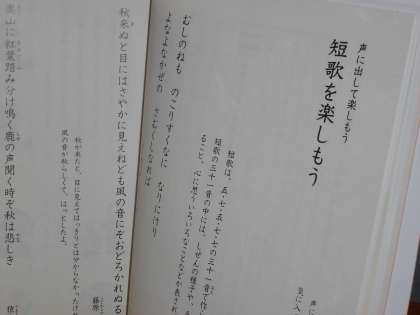 声に出して楽しもう
短歌を楽しもう
短歌は、五・七・五・七・七の三十一音で作
短歌の三十一音の中には、しぜんの様子や、
ること、心に思ういろいろなことなどが表され
むしのねも のこりすくなに なりにけり
よなよなかぜの さむくしなれば
秋来ぬと目にはさやかに見えねども風の音にぞおどろかれぬる
秋が来たと、目に見えてはっきりとは分からなかったけれ
風の音が秋らしくて、はっとしたよ。
藤原
奥山に紅葉踏み分け鳴く鹿の声聞く時ぞ秋は悲しき